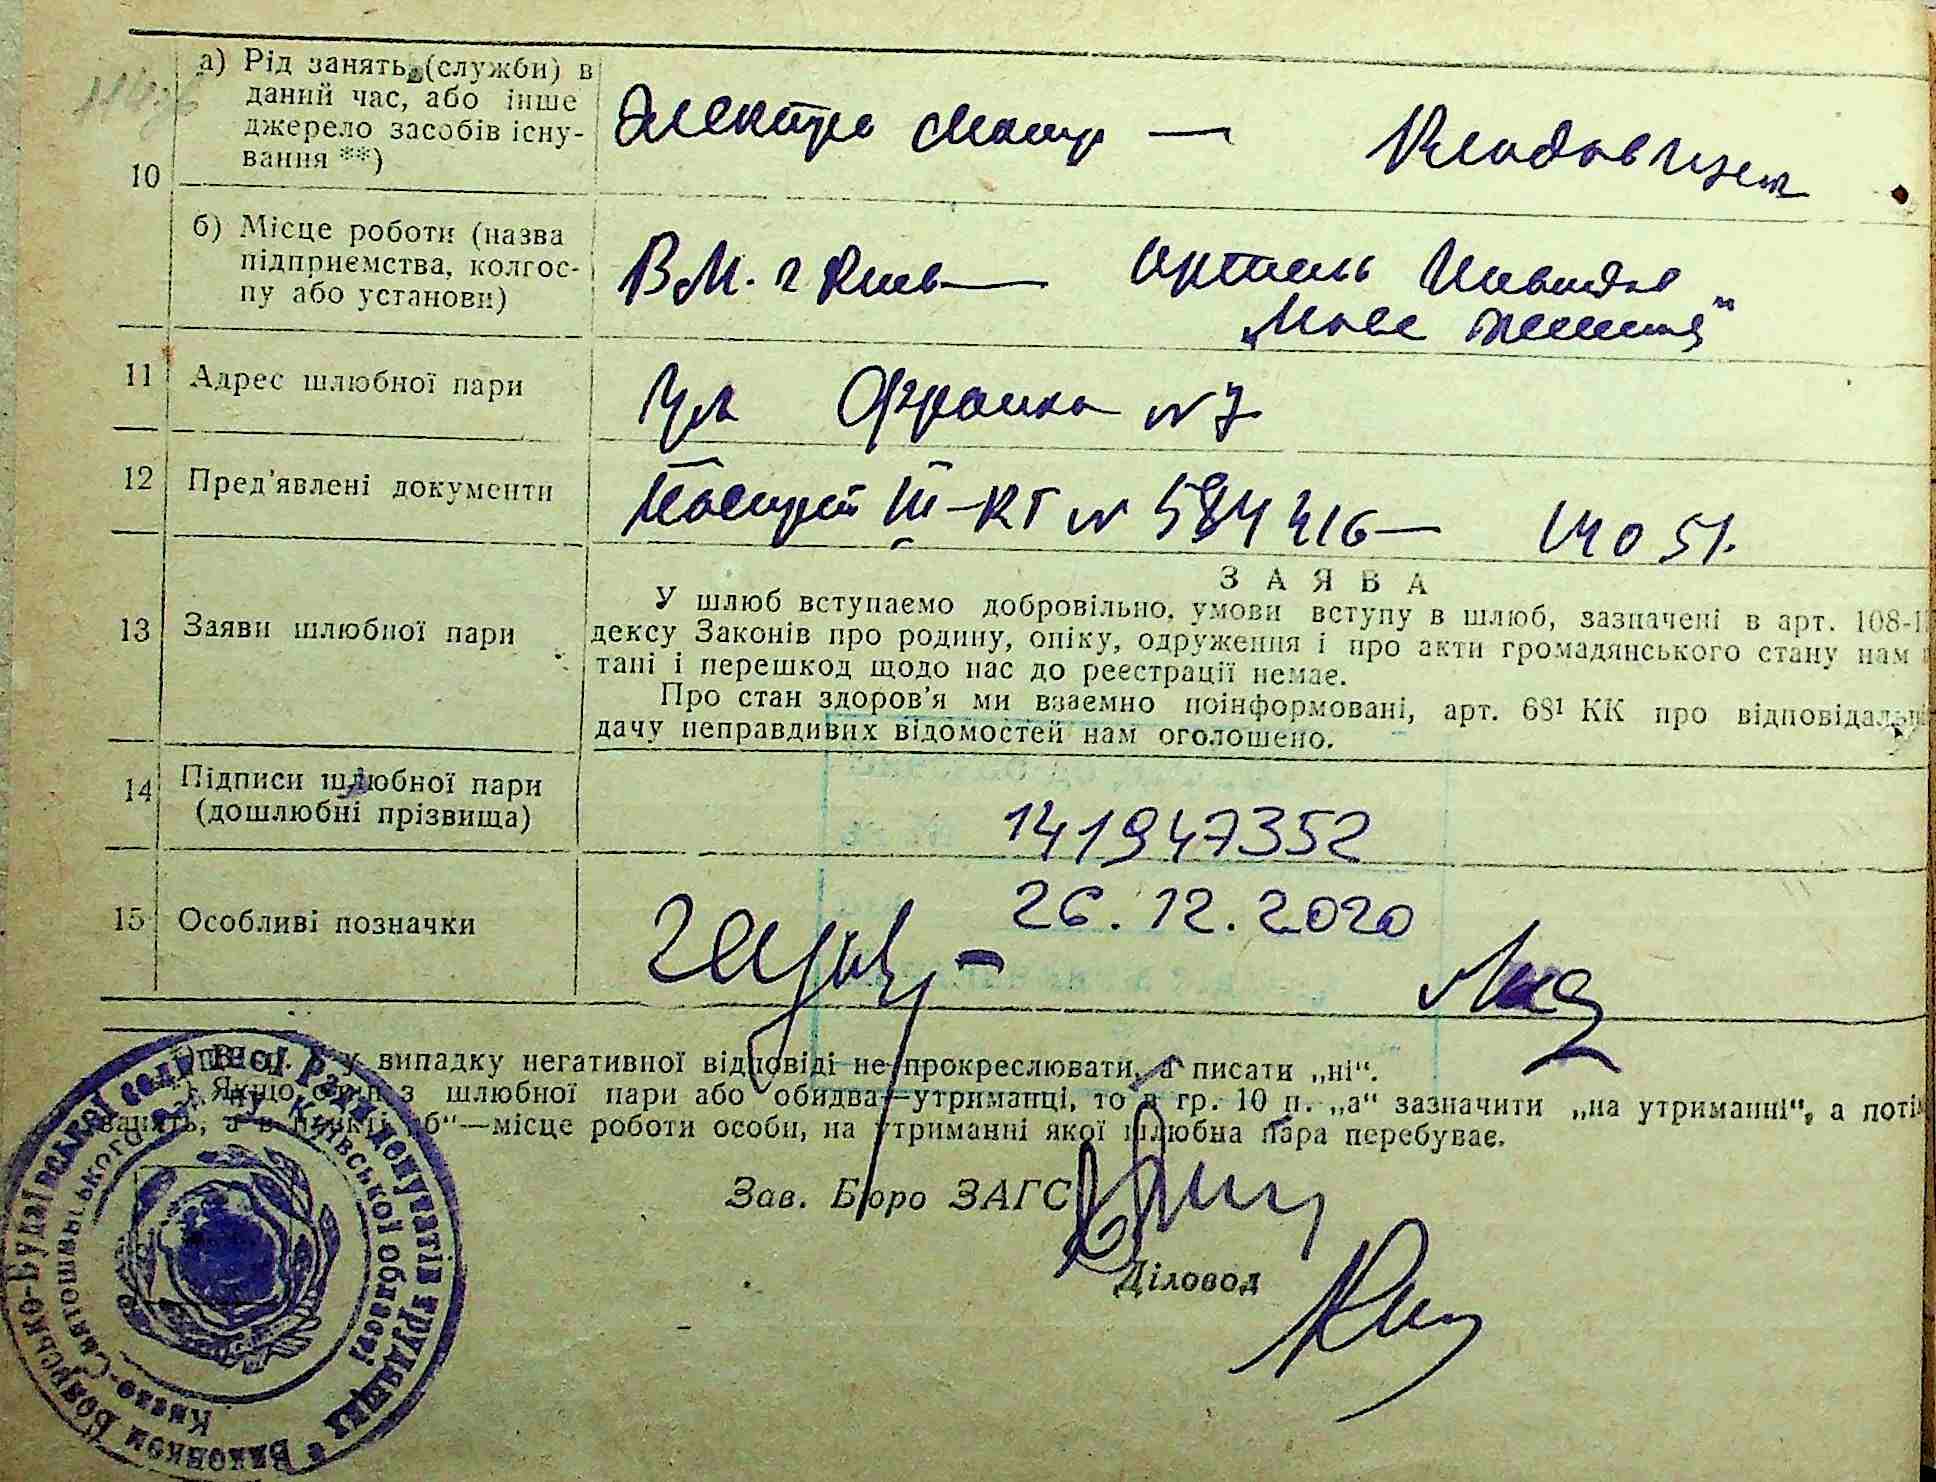 10
а) Рід занять (служби) в
даний час, або інше
джерело засобів існу-
вання **)
Электро —
б) Місце роботи (назва
підприємства, колгос-
пу або установи)
В М. г Киев — Артель Инвалидов
11 Адрес шлюбної пари
ул Франка № 7
12 Пред'явлені документи
Паспорт III-КГ № —
13 Заяви шлюбної пари
ЗАЯВА
У шлюб вступаємо добровільно, умови вступу в шлюб, зазначені в арт. 108-1
дексу Законів про родину, опіку, одруження і про акти громадянського стану нам
тані і перешкод щодо нас до реєстрації немає.
Про стан здоров'я ми взаємно поінформовані, арт. 68¹ КК про відповідаль
дачу неправдивих відомостей нам оголошено.
14 Підписи шлюбної пари
(дошлюбні прізвища)
141947352
15 Особливі позначки
26.12.2020
у випадку негативної відповіді не прокреслювати, а писати „ні“.
Якщо один з шлюбної пари або обидва—утриманці, то в гр. 10 п. „а“ зазначити „на утриманні“, а поті
занять, а в пункті „б“—місце роботи особи, на утриманні якої шлюбна пара перебуває.
Зав. Бюро ЗАГС
Діловод
Виконком Боярсько-Будаївської селищної Ради депутатів трудящих
Києво-Святошинського району Київської області